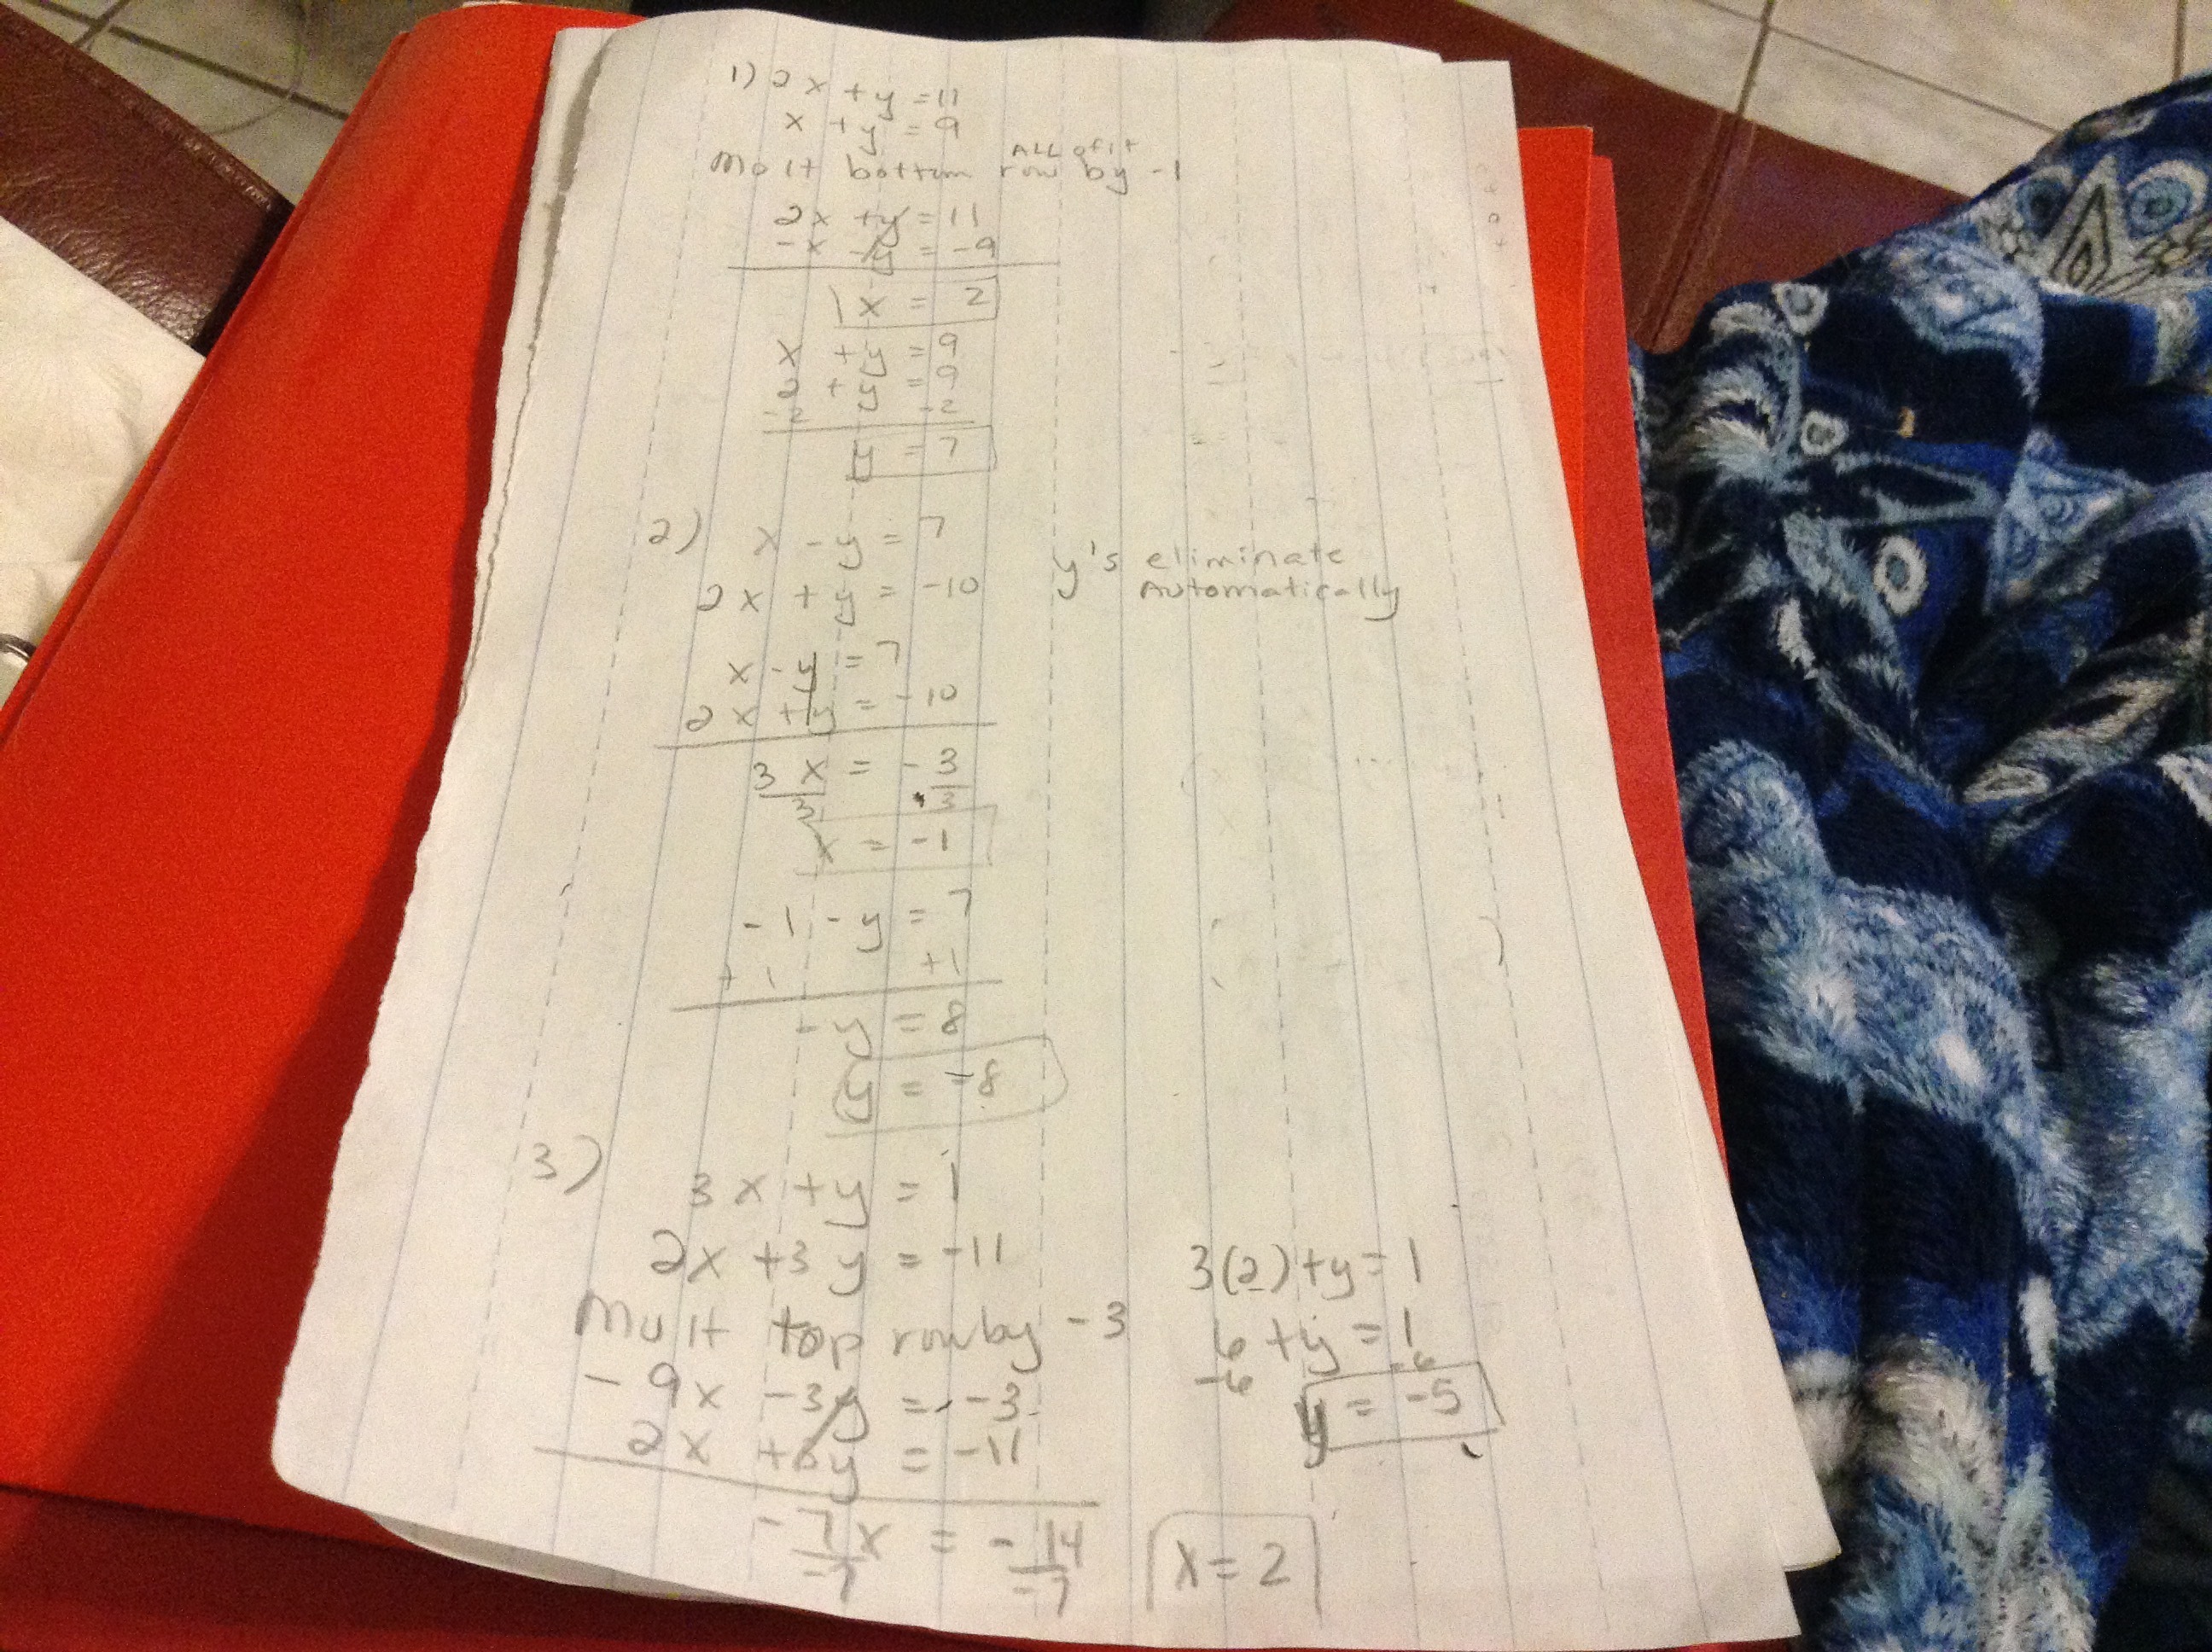 1) 2x + y = 11
x + y = 9
ALL of it
Mult bottom row by -1
2x + y = 11
-x - y = -9
x = 2
x + y = 9
2 + y = 9
-2 -2
y = 7
2) x - y = 7
2x + y = -10
y's eliminate
Automatically
x - y = 7
2x + y = -10
3x = -3
3 3
x = -1
-1 - y = 7
+1 +1
-y = 8
y = -8
3)
3x + y = 1
2x + 3y = -11
Mult top row by -3
-9x - 3y = -3
2x + 3y = -11
-7x = -14
-7 -7
x = 2
3(2) + y = 1
6 + y = 1
-6 -6
y = -5